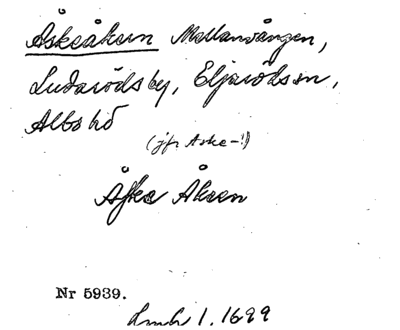 Åskeåkern Mellanvången,
Ludarödsby, Eljarödssn,
Albo hd
(jfr Aske-!)
Åske Åkren
Nr 5939.
Lmh 1. 1699